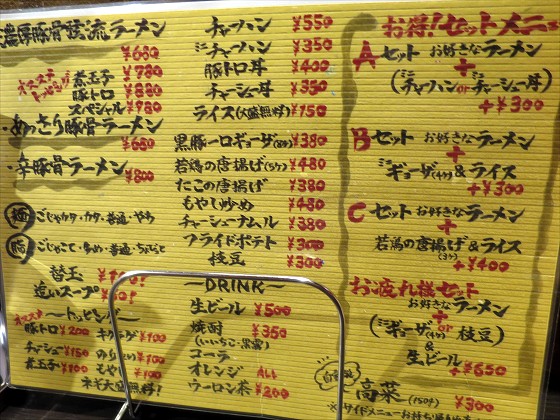 濃厚豚骨諼流ラーメン
¥680
オススメトッピング
煮玉子 ¥780
豚トロ ¥880
スペシャル ¥980
あっさり豚骨ラーメン
¥680
辛豚骨ラーメン ¥800
麺 ごじゃカタ・カタ・普通・やわ
脂 ごじゃこて・多め・普通・ちょびっと
替玉
追いスープ
〜トッピング〜
オススメ
豚トロ ¥200 キクラゲ ¥100
チャーシュー ¥150 のり ¥100
煮玉子 ¥100 もやし ¥100
ネギ大盛無料!
チャーハン ¥550
ミニチャーハン ¥350
豚トロ丼 ¥400
チャーシュー丼 ¥350
ライス(大盛無料) ¥150
黒豚一口ギョーザ(8ケ) ¥380
若鶏の唐揚げ(5ケ) ¥480
たこの唐揚げ ¥380
もやし炒め ¥480
チャーシューナムル ¥380
フライドポテト ¥300
枝豆 ¥300
〜DRINK〜
生ビール ¥500
焼酎 ¥350
(いいちこ・黒霧)
コーラ
オレンジ ALL
ウーロン茶 ¥200
お得!セットメニュー
Aセット お好きなラーメン
+
(ミニチャーハン or ミニチャーシュー丼)
+¥300
Bセット お好きなラーメン
+
ミニギョーザ(4ケ)&ライス
+¥300
Cセット お好きなラーメン
+
若鶏の唐揚げ&ライス
(3ケ) +¥400
お疲れ様セット
お好きなラーメン
+
(ミニギョーザ(4ケ) or 枝豆)
&
生ビール +¥650
高菜(150g) ¥300
※サイドメニュー